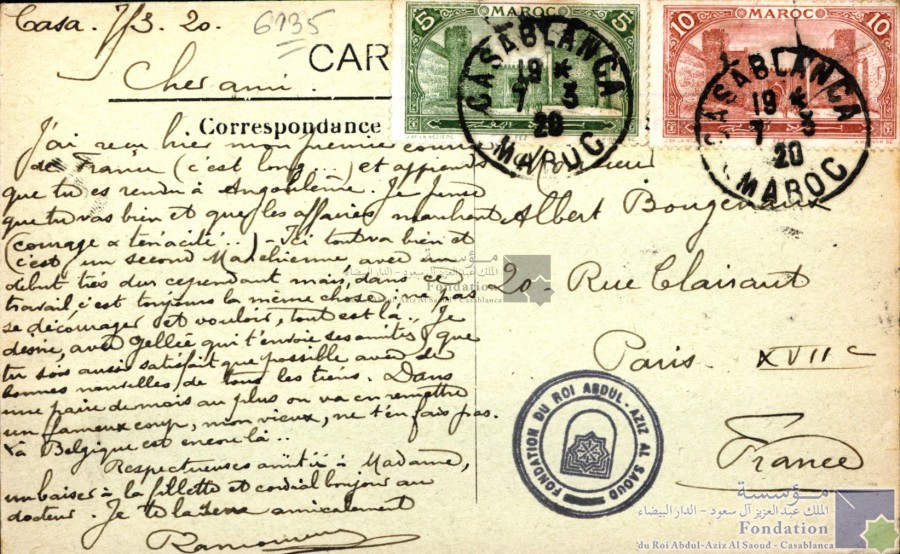 Casa. 7/3. 20.
6135
CAR
Cher ami.
Correspondance
5 MAROC 5
10 MAROC 10
CASABLANCA
19 *
7 3
20
MAROC
CASABLANCA
19 *
7 3
20
MAROC
J'ai reçu hier mon premier
de France (c'est long) et apprends
que tu es rendu à Angoulême. Je pense
que tu vas bien et que les affaires marchent
(courage & ténacité..) - Ici tout va bien et
c'est un second Marchienne avec un
début très dur cependant mais, dans ce
travail, c'est toujours la même chose, ne pas
se décourager et vouloir, tout est là.. Je
désire, avec qui t'envoie ses amitiés, que
tu sois aussi satisfait que possible avec de
bonnes nouvelles de tous les tiens. Dans
une paire de mois au plus on va en remettre
un fameux coup, mon vieux, ne t'en fais pas.
La Belgique est encore là..
Respectueuses amitié à Madame,
un baiser à la fillette et cordial bonjour au
docteur. Je te la serre amicalement
Monsieur
Albert
20 - Rue Clairaut
Paris XVII e
France
مؤسسة
الملك عبد العزيز آل سعود - الدار البيضاء
Fondation
du Roi Abdul-Aziz Al Saoud - Casablanca
FONDATION DU ROI ABDUL-AZIZ AL SAOUD
مؤسسة
الملك عبد العزيز آل سعود - الدار البيضاء
Fondation
du Roi Abdul-Aziz Al Saoud - Casablanca